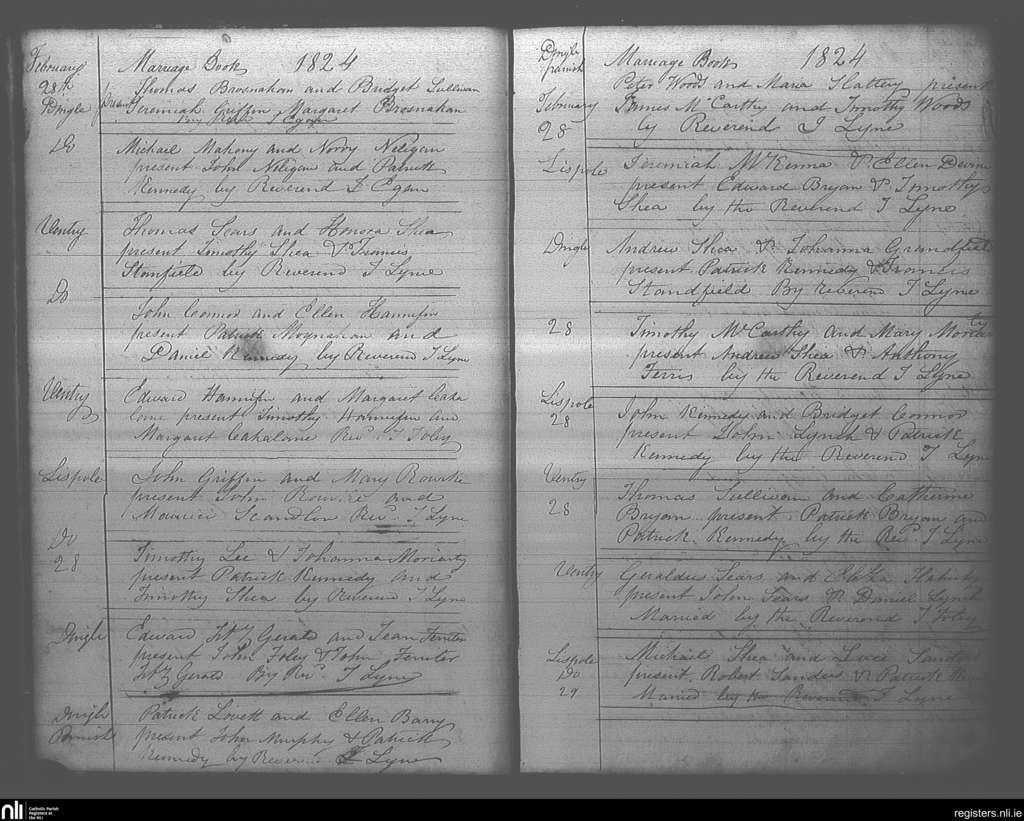 February
28th
Dingle
Marriage Book 1824
Thomas Brosnahan and Bridget Sullivan
present Jeremiah Griffin Margaret Brosnahan
By Revd J Egan
Do
Michail Mahony and Norry Neligan
present John Neligan and Patrick
Kennedy by Reverend J Egan
Ventry
Thomas Sears and Honora Shea
present Timothy Shea & Francis
Stanfield by Reverend T Lyne
Do
John Connor and Ellen Hannifin
present Patrick and
Daniel Kennedy by Reverend T Lyne
Ventry
Edward Hannifin and Margaret Caha
lane present Timothy Hannifin and
Margaret Cahalane Revd T Foley
Lispole
John Griffin and Mary Rourke
present John Rourke and
Maurice Scandlon Revd T Lyne
Do
28
Timothy Lee & Johanna Moriarty
present Patrick Kennedy and
Timothy Shea by Reverend T Lyne
Dingle
Edward FitzGerald and Jean Ferriter
present John Foley & John Ferriter
FitzGerald By Revd T Lyne
Dingle
Parish
Patrick Lovett and Ellen Barry
present John Murphy & Patrick
Kennedy by Reverend Lyne
Dingle
parish
February
28
Marriage Book 1824
Peter Woods and Maria Slattery present
James McCarthy and Timothy Woods
by Reverend T Lyne
Lispole
Jeremiah McKenna & Ellen Devine
present Edward Bryan & Timothy
Shea by the Reverend T Lyne
Dingle
Andrew Shea & Johanna Grandfield
present Patrick Kennedy & Francis
Standfield By Reverend T Lyne
28
Timothy McCarthy and Mary Moria
rty
present Andrew Shea & Anthony
Ferris by the Reverend T Lyne
Lispole
28
John Kennedy and Bridget Connor
present John Lynch & Patrick
Kennedy by the Reverend T Lyne
Ventry
28
Thomas Sullivan and Catherine
Bryan present Patrick Bryan and
Patrick Kennedy by the Revd T Lyne
Ventry
Geraldus Sears and
present John Sears & Daniel Lynch
Married by the Reverend T Foley
Lispole
Do
29
Michail Shea and Luce Sanders
present Robert Sanders & Patrick
Married by the Reverend T Lyne
nli
Catholic Parish
Registers at
the NLI
registers.nli.ie